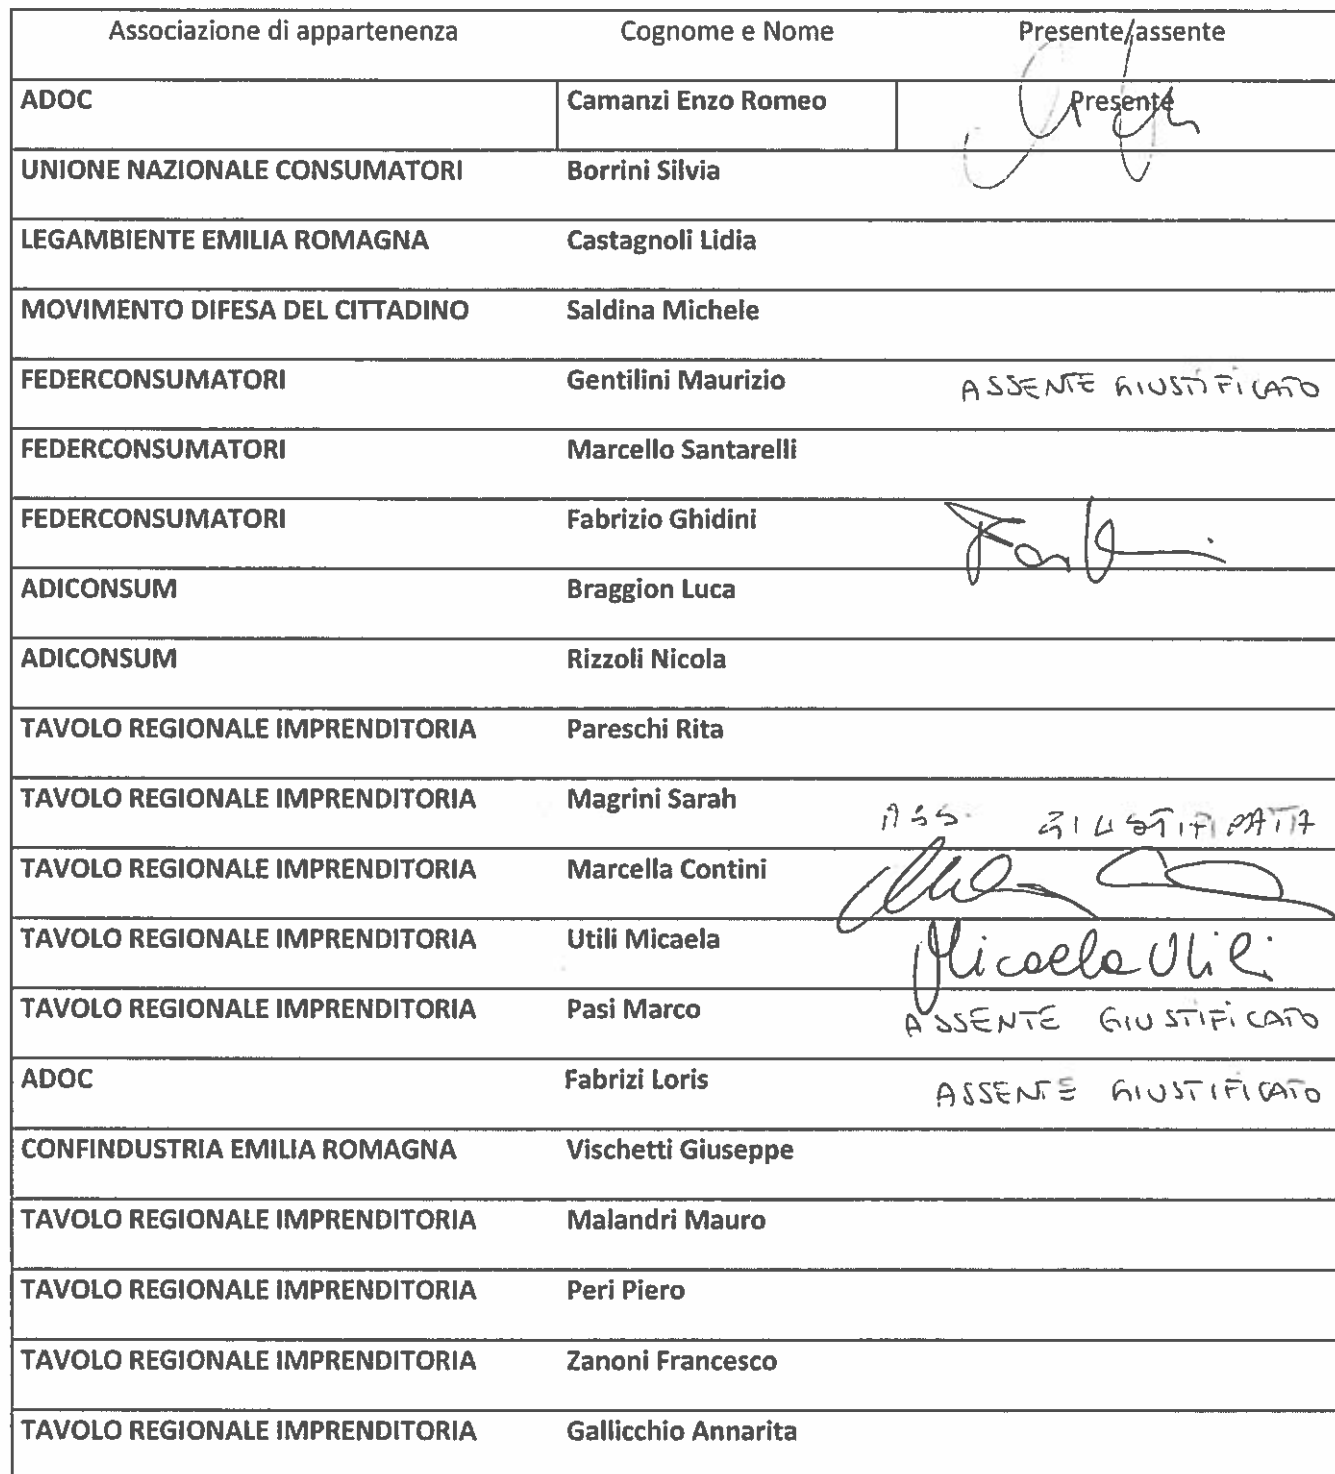 Associazione di appartenenza Cognome e Nome Presente/assente
ADOC Camanzi Enzo Romeo Presente
UNIONE NAZIONALE CONSUMATORI Borrini Silvia
LEGAMBIENTE EMILIA ROMAGNA Castagnoli Lidia
MOVIMENTO DIFESA DEL CITTADINO Saldina Michele
FEDERCONSUMATORI Gentilini Maurizio ASSENTE GIUSTIFICATO
FEDERCONSUMATORI Marcello Santarelli
FEDERCONSUMATORI Fabrizio Ghidini
ADICONSUM Braggion Luca
ADICONSUM Rizzoli Nicola
TAVOLO REGIONALE IMPRENDITORIA Pareschi Rita
TAVOLO REGIONALE IMPRENDITORIA Magrini Sarah ASS. GIUSTIFICATA
TAVOLO REGIONALE IMPRENDITORIA Marcella Contini
TAVOLO REGIONALE IMPRENDITORIA Utili Micaela Micaela Utili
TAVOLO REGIONALE IMPRENDITORIA Pasi Marco ASSENTE GIUSTIFICATO
ADOC Fabrizi Loris ASSENTE GIUSTIFICATO
CONFINDUSTRIA EMILIA ROMAGNA Vischetti Giuseppe
TAVOLO REGIONALE IMPRENDITORIA Malandri Mauro
TAVOLO REGIONALE IMPRENDITORIA Peri Piero
TAVOLO REGIONALE IMPRENDITORIA Zanoni Francesco
TAVOLO REGIONALE IMPRENDITORIA Gallicchio Annarita